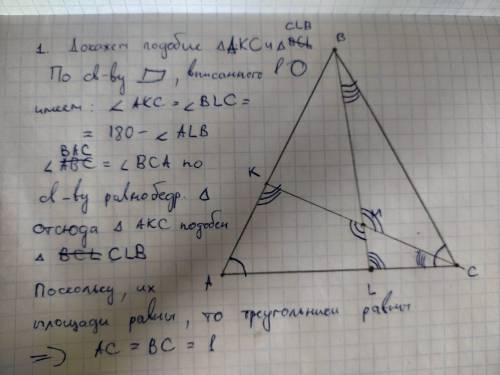 CLB
1. Докажем подобие △AKC и △B̶C̶L̶
По св-ву ▱, вписанного в ○
имеем: ∠AKC = ∠BLC =
= 180 - ∠ALB
BAC
∠A̶B̶C̶ = ∠BCA по
св-ву равнобедр. △
отсюда △AKC подобен
△ B̶C̶L̶ CLB
Поскольку, их
площади равны, то треугольники равны
=> AC = BC = 1
B
K
A
L
C